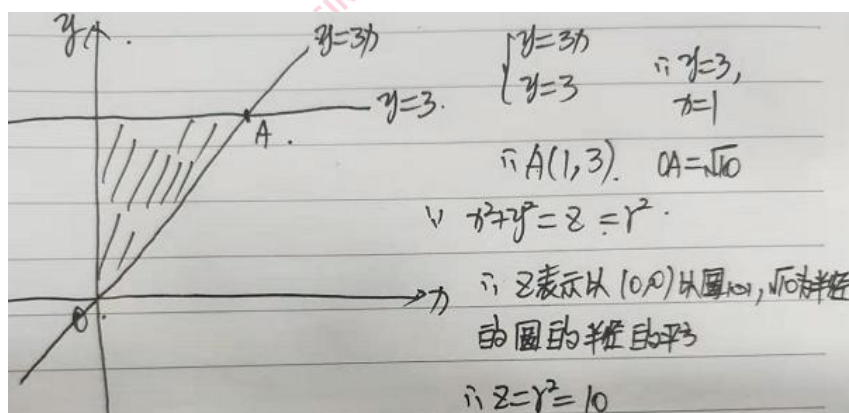 y
y=3x
y=3.
A.
O
x
{y=3x
y=3
∴y=3,
x=1
∴A(1,3). OA=√10
∵ x²+y²=z=r².
∴z表示以(0,0)以圆心,√10为半径
的圆的半径的平方
∴z=r²=10